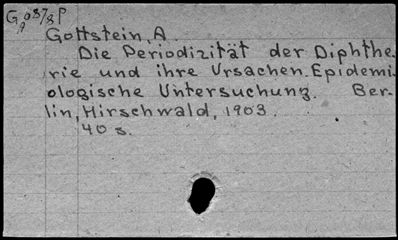 Gottstein, A.
Die Periodizität der Diphthe-
rie und ihre Ursachen. Epidemi-
ologische Untersuchung. Ber-
lin, Hirschwald, 1903.
40 s.